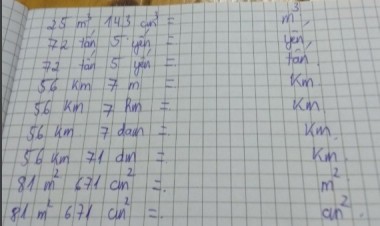 25 m³ 143 cm³ = m³
72 tấn 5 yến = yến
72 tấn 5 yến = tấn
56 km 7 m = Km
56 km 7 hm = Km
56 km 7 dam = Km
56 km 71 dm = Km
81 m² 671 cm² = m²
81 m² 671 cm² = cm²